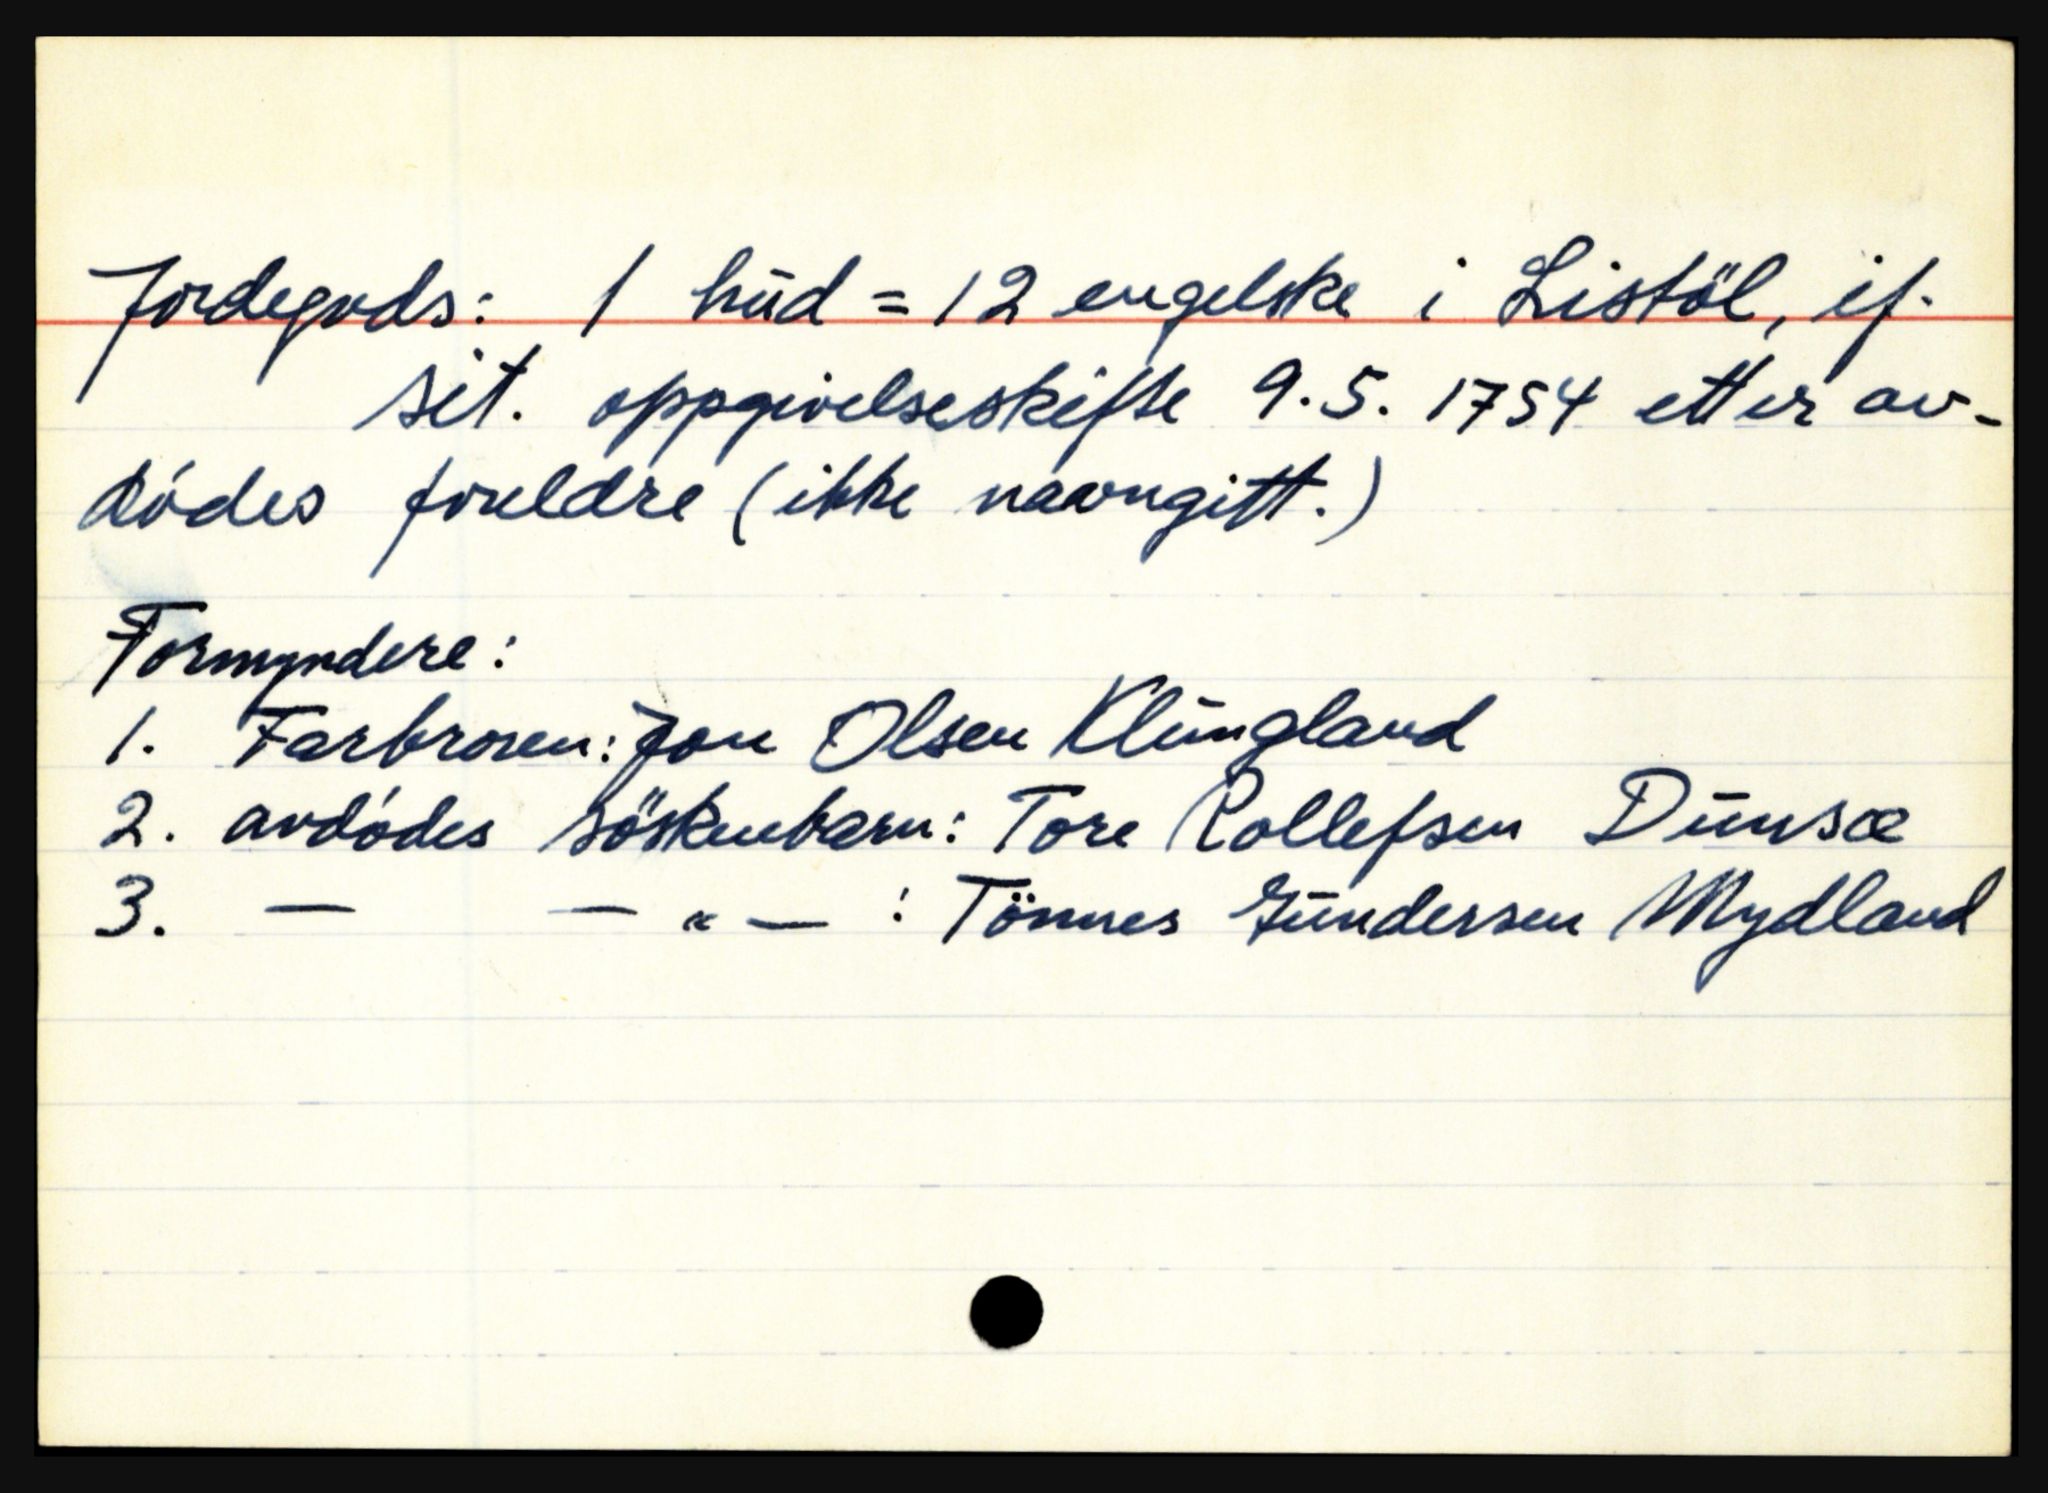 Jordegods: 1 hud = 12 engelske i Listöl, if.
sit. oppgivelseskifte 9.5. 1754 etter av-
dødes foreldre (ikke navngitt.)
Formyndere:
1. Farbroren: Jon Olsen Klungland
2. avdødes söskenbarn: Tore Rollefsen Dunsæ
3. — — " — : Tönnes Gundersen Mydland